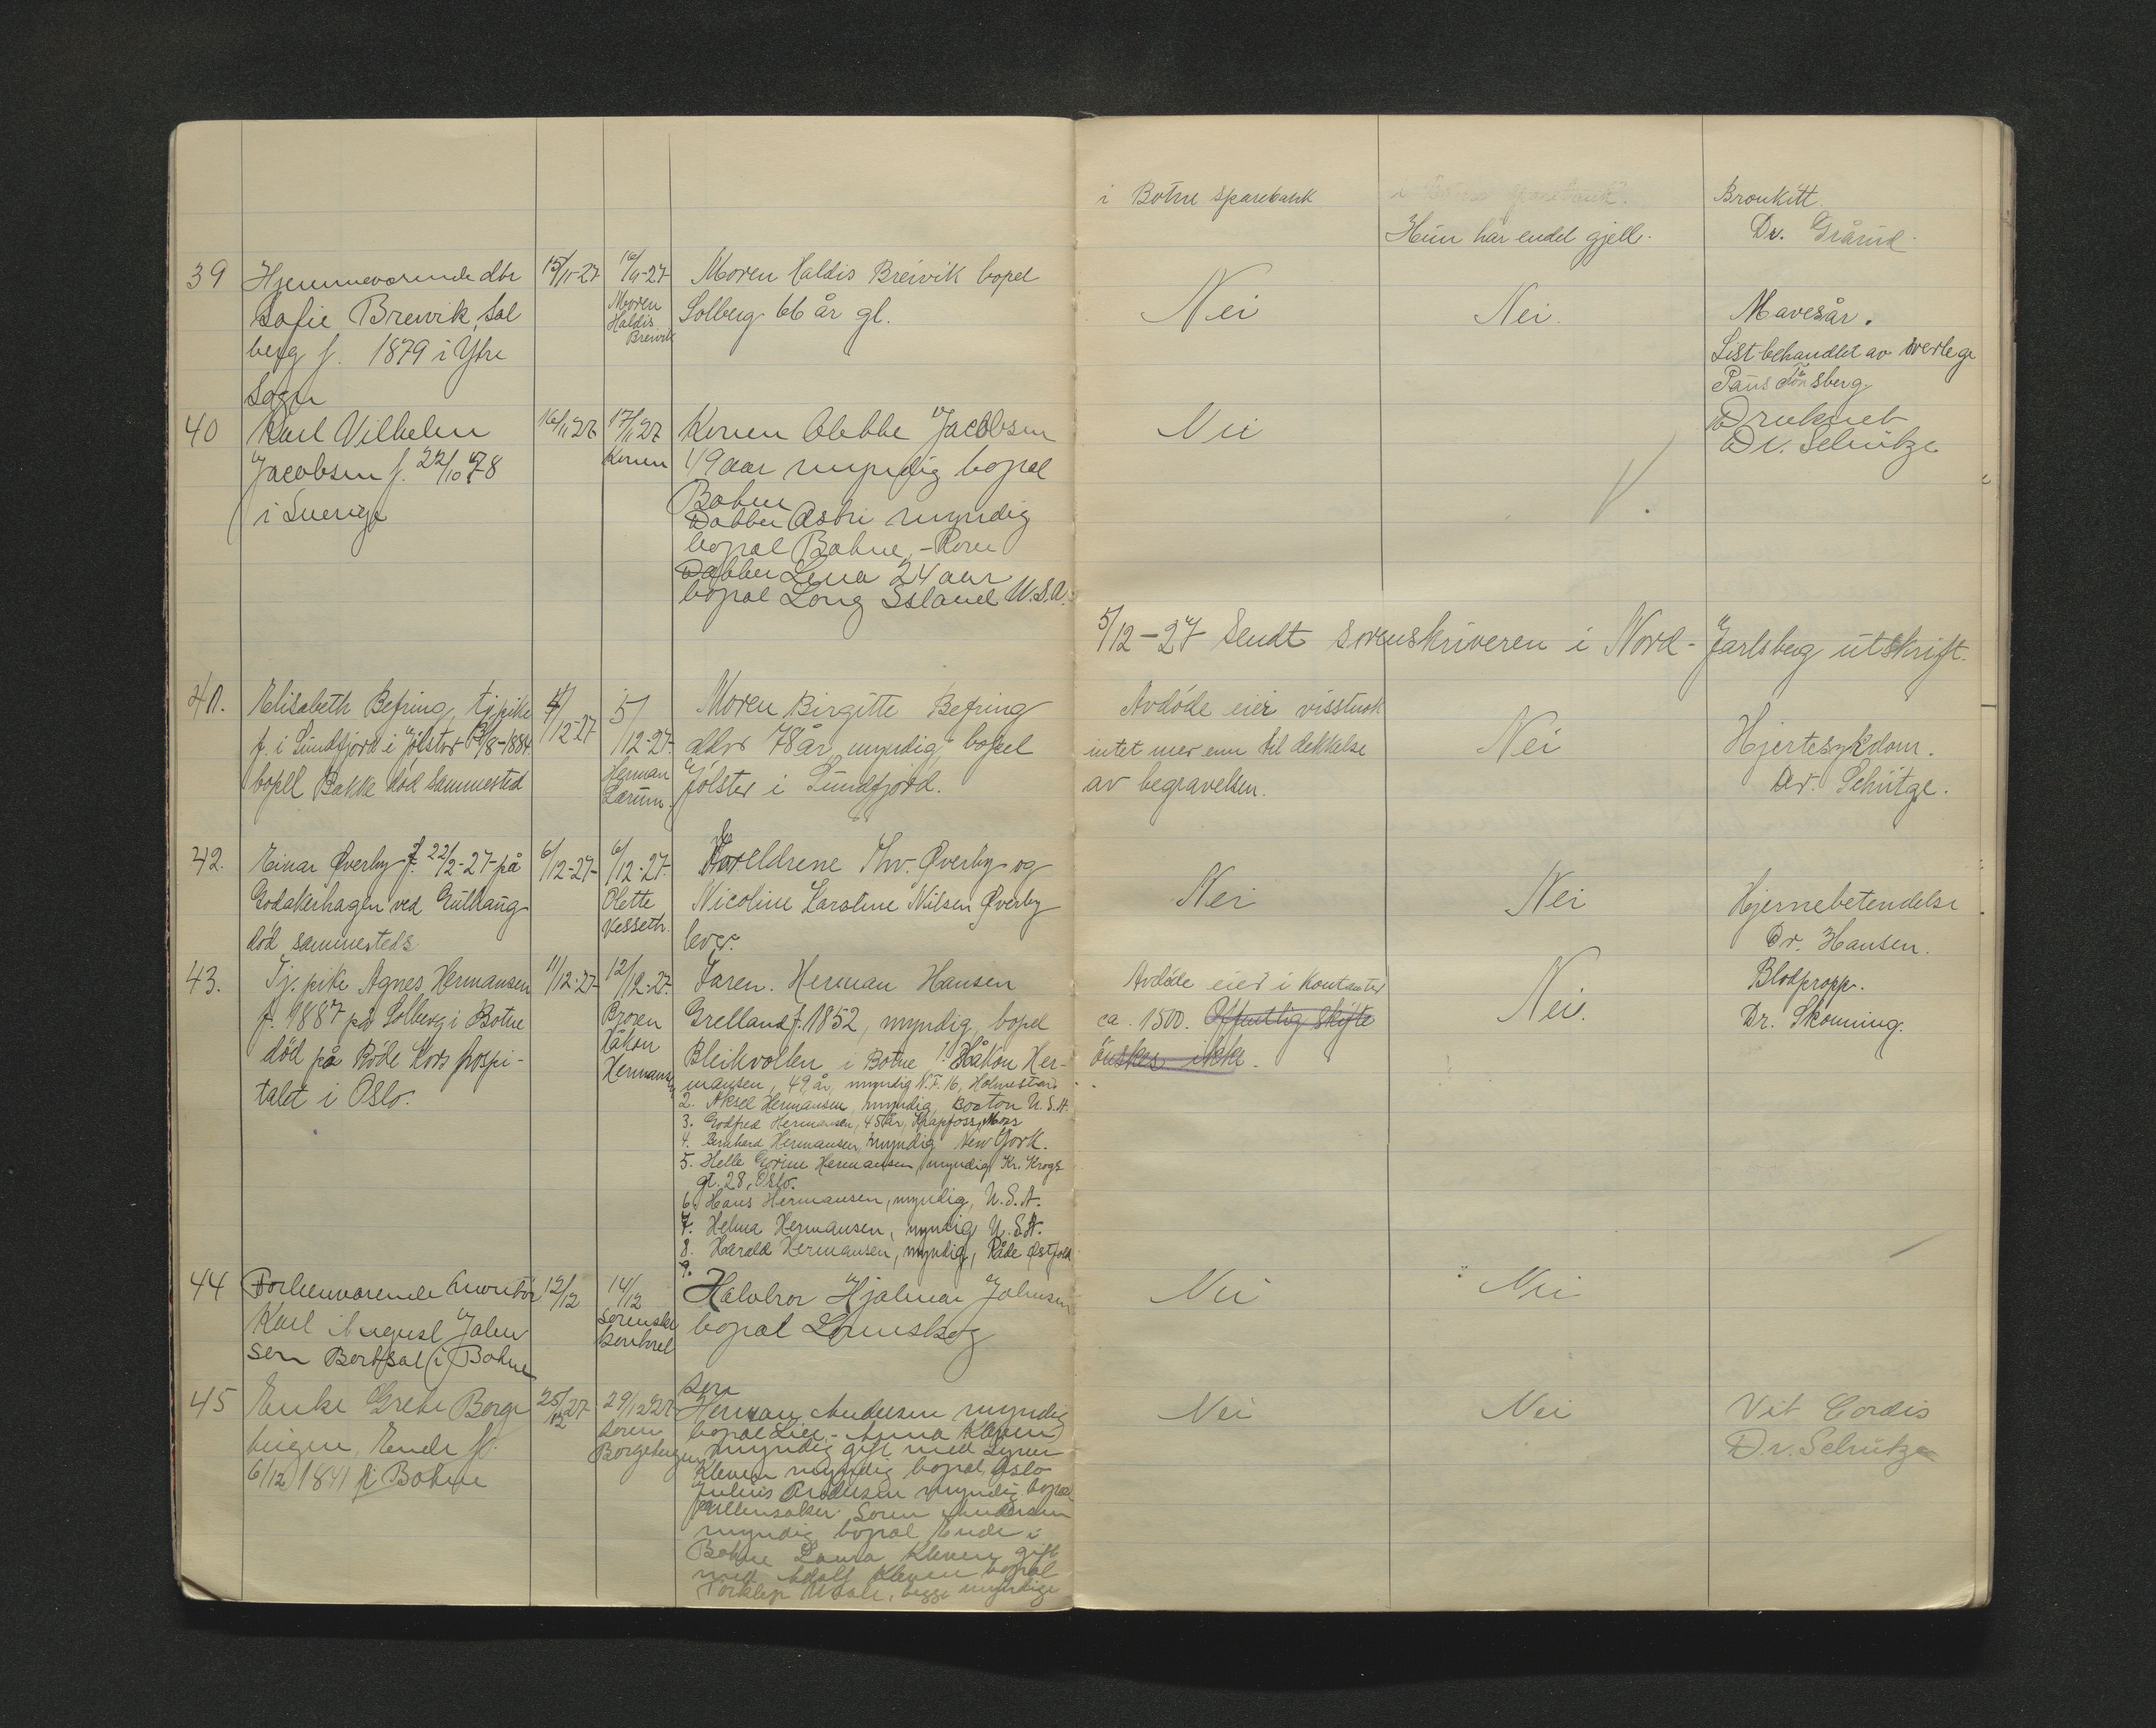 i Botne sparebank
Hun har endel gjell.
Bronkitt.
Dr. Grårud.
39 Hjemmeværende dtr
Sofie Breivik, Sol
berg f. 1879 i Ytre
Sogn
15/11-27
16/11-27
Moren
Haldis
Breivik
Moren Haldis Breivik bopel
Solberg 66 år gl.
Nei
Nei.
Mavesår.
Sist behandlet av overlege
Paus Tönsberg
40 Karl Vilhelm
Jacobsen f. 22/10 78
i Sverige
16/11 27
17/11 27
Konen
Konen Jacobsen
49 aar myndig bopel
Botne
Datter Astri myndig
bopæl Botne,
Datter Lena 24 aar
bopæl Long Island U.S.A.
Nei
Druknet
Dr. Schützc
5/12-27 Sendt sorenskriveren i Nord-Jarlsberg utskrift.
41. Elisabeth Befring, tj.pike
f. i Sundfjord i Jölster /8-1884
bopell Bakke död sammested
4/12-27
5/12-27
Herman
Lærum.
Moren Birgitte Befring
alder 78 år, myndig, bopel
Jölster i Sundfjord.
Avdöde eier visstnok
intet mer enn til dekkelse
av begravelsen.
Nei
Hjertesykdom.
Dr. Schütze.
42. Einar Øverby f. 22/2-27- på
Godakerhagen ved Gullhaug
död sammesteds.
6/12-27-
6/12-27-
Olette
Kesseth.
Foreldrene Thv. Øverby og
Nicoline Karoline Nilsen Øverby
lever.
Nei
Nei
Hjernebetendelse
Dr. Hansen.
43. Tj. pike Agnes Hermansen
f. 1887 på Solberg i Botne
död på Röde Kors hospi-
talet i Oslo.
11/12-27-
12/12-27.
Broren
Håkon
Hermansen
Faren. Herman Hansen
Grelland f. 1852, myndig, bopel
Bleikvollen i Botne 1. Håkon Her-
mansen, 49 år, myndig N.F. 16, Holmestrand
2. Aksel Hermansen, myndig, Boston U.S.A.
3. Godfred Hermansen, 45 år, Krapfoss, Moss
4. Bernhard Hermansen, myndig New York.
5. Helle Hermansen, myndig Kr. Krogs
gt. 28, Oslo.
6. Hans Hermansen, myndig, U.S.A.
7. Helma Hermansen, myndig U.S.A.
8. Harald Hermansen, myndig, Råde Østfold
9.
Avdöde eier i kontanter
ca. 1500. Offentlig skifte
önskes ikke.
Nei.
Blodpropp.
Dr. Skonning.
44 Forhenværende
Karl August John
sen Bertsal i Botne
12/12
14/12
Sorenskr
kontoret
Halvbror Hjalmar Johnsen
bopæl Lörenskog
Nei
Nei
45 Enke Grete Borge
6/12 1841 i Botne
25/12 27-
29/12 27
Soren
Borgebergen
Sön
Herman Andersen myndig
bopæl Lier - Anna Kleven
myndig gift med
Kleven myndig bopæl Oslo
Julius Andersen myndig bopæl
Sören Andersen
myndig bopæl Ende i
Botne Laura Kleven gift
med Adolf Kleven bopæl
begge myndige
Nei
Nei
Vit Cordis
Dr. Schütze